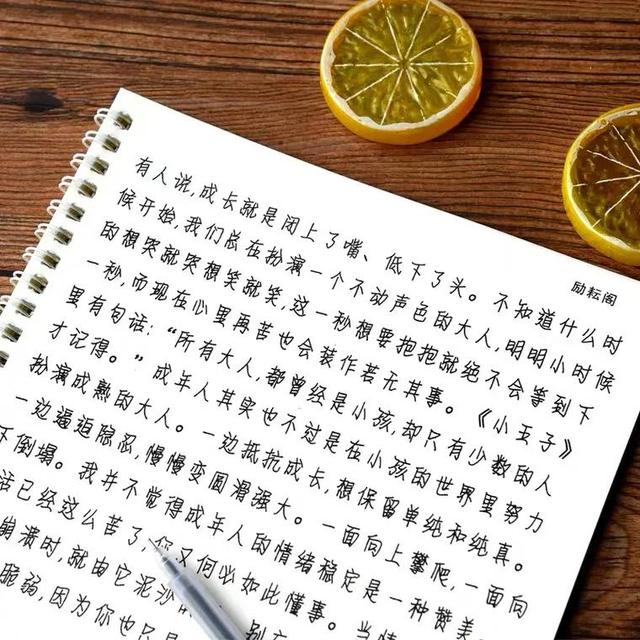 励耘阁
有人说,成长就是闭上了嘴、低下了头。不知道什么时
候开始,我们总在扮演一个不动声色的大人,明明小时候
的想哭就哭想笑就笑,这一秒想要抱抱就绝不会等到下
一秒,而现在心里再苦也会装作若无其事。《小王子》
里有句话:“所有大人,都曾经是小孩,却只有少数的人
才记得。”成年人其实也不过是在小孩的世界里努力
扮演成熟的大人。一边抵抗成长,想保留单纯和纯真。
一边逼迫隐忍,慢慢变圆滑强大。一面向上攀爬,一面向
下倒塌。我并不觉得成年人的情绪稳定是一种赞美
活已经这么苦了,你又何必如此懂事。当情
崩溃时,就由它泥沙 别
脆弱,因为你也只